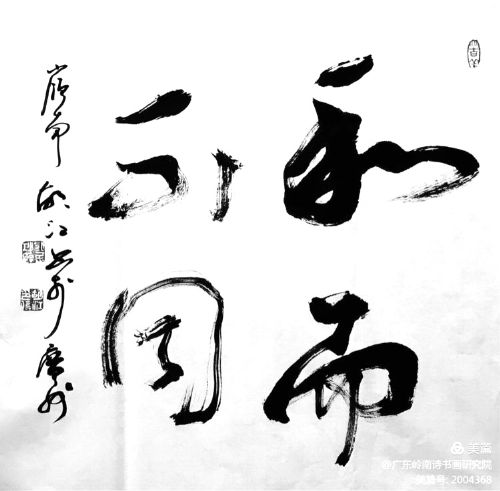 和而
不同
江书于广州
美篇
@广东岭南诗书画研究院
美篇号: 2004368